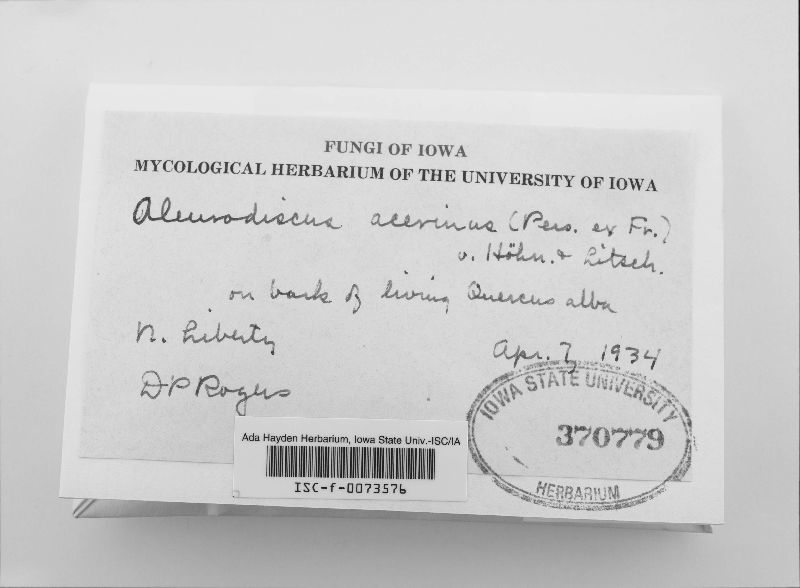 FUNGI OF IOWA
MYCOLOGICAL HERBARIUM OF THE UNIVERSITY OF IOWA
Aleurodiscus acerinus (Pers. ex Fr.)
v. Höhn. & Litsch.
on bark of living Quercus alba
N. Liberty
Apr. 7 1934
D P Rogers
IOWA STATE UNIVERSITY
370779
HERBARIUM
Ada Hayden Herbarium, Iowa State Univ.-ISC/IA
ISC-f-0073576